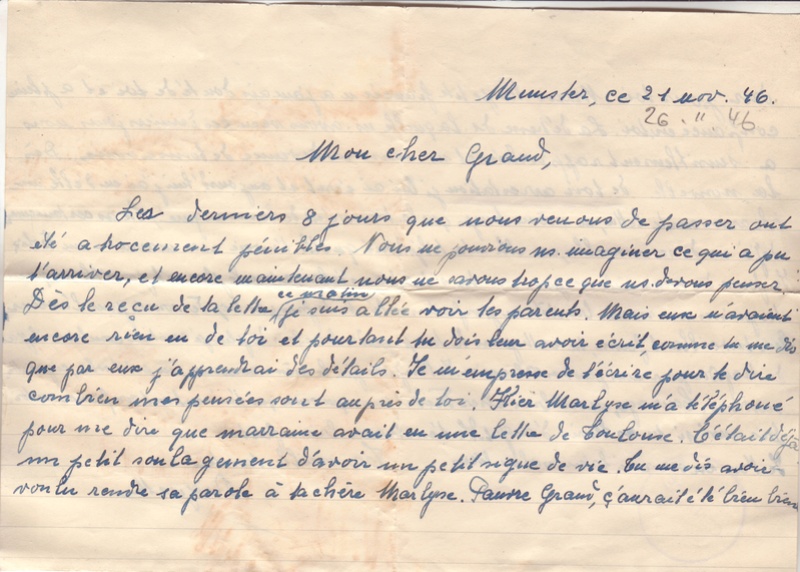 Munster, ce 21 nov. 46.
26. " 46
Mon cher Grand,
Les derniers 8 jours que nous venons de passer ont
été atrocement pénibles. Nous ne pouvions ns. imaginer ce qui a pu
t'arriver, et encore maintenant nous ne savons trop ce que ns. devons penser.
Dès le reçu de ta lettre ce matin je suis allée voir tes parents. Mais eux n'avaient
encore rien eu de toi et pourtant tu dois leur avoir écrit, comme tu me dis
que par eux j'apprendrai des détails. Je m'empresse de t'écrire pour te dire
combien mes pensées sont auprès de toi. Hier Marlyse m'a téléphoné
pour me dire que marraine avait eu une lettre de Toulouse. C'était déjà
un petit soulagement d'avoir un petit signe de vie. Tu me dis avoir
voulu rendre sa parole à ta chère Marlyse. Pauvre Grand, ç'aurait été bien bien